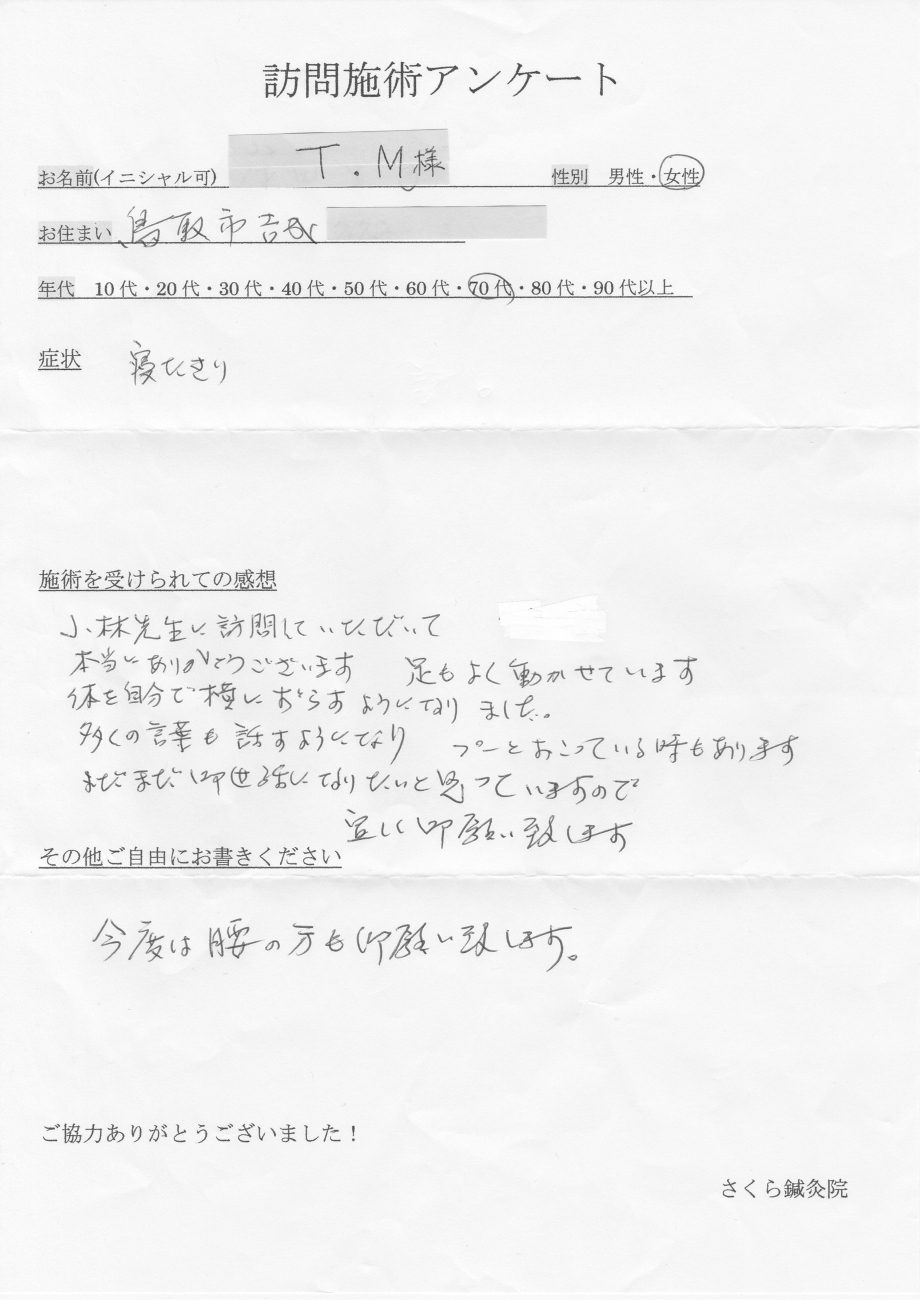 訪問施術アンケート
お名前(イニシャル可) T.M様 性別 男性・女性
お住まい 鳥取市吉成
年代 10代・20代・30代・40代・50代・60代・70代・80代・90代以上
症状 寝たきり
施術を受けられての感想
小林先生に訪問していただいて
本当にありがとうございます 足もよく動かせています
体を自分で横にずらすようになりました。
多くの言葉も話すようになり プーとおこっている時もあります
まだまだ御世話になりたいと思っていますので
宜しく御願い致します
その他ご自由にお書きください
今度は腰の方も御願い致します。
ご協力ありがとうございました！
さくら鍼灸院